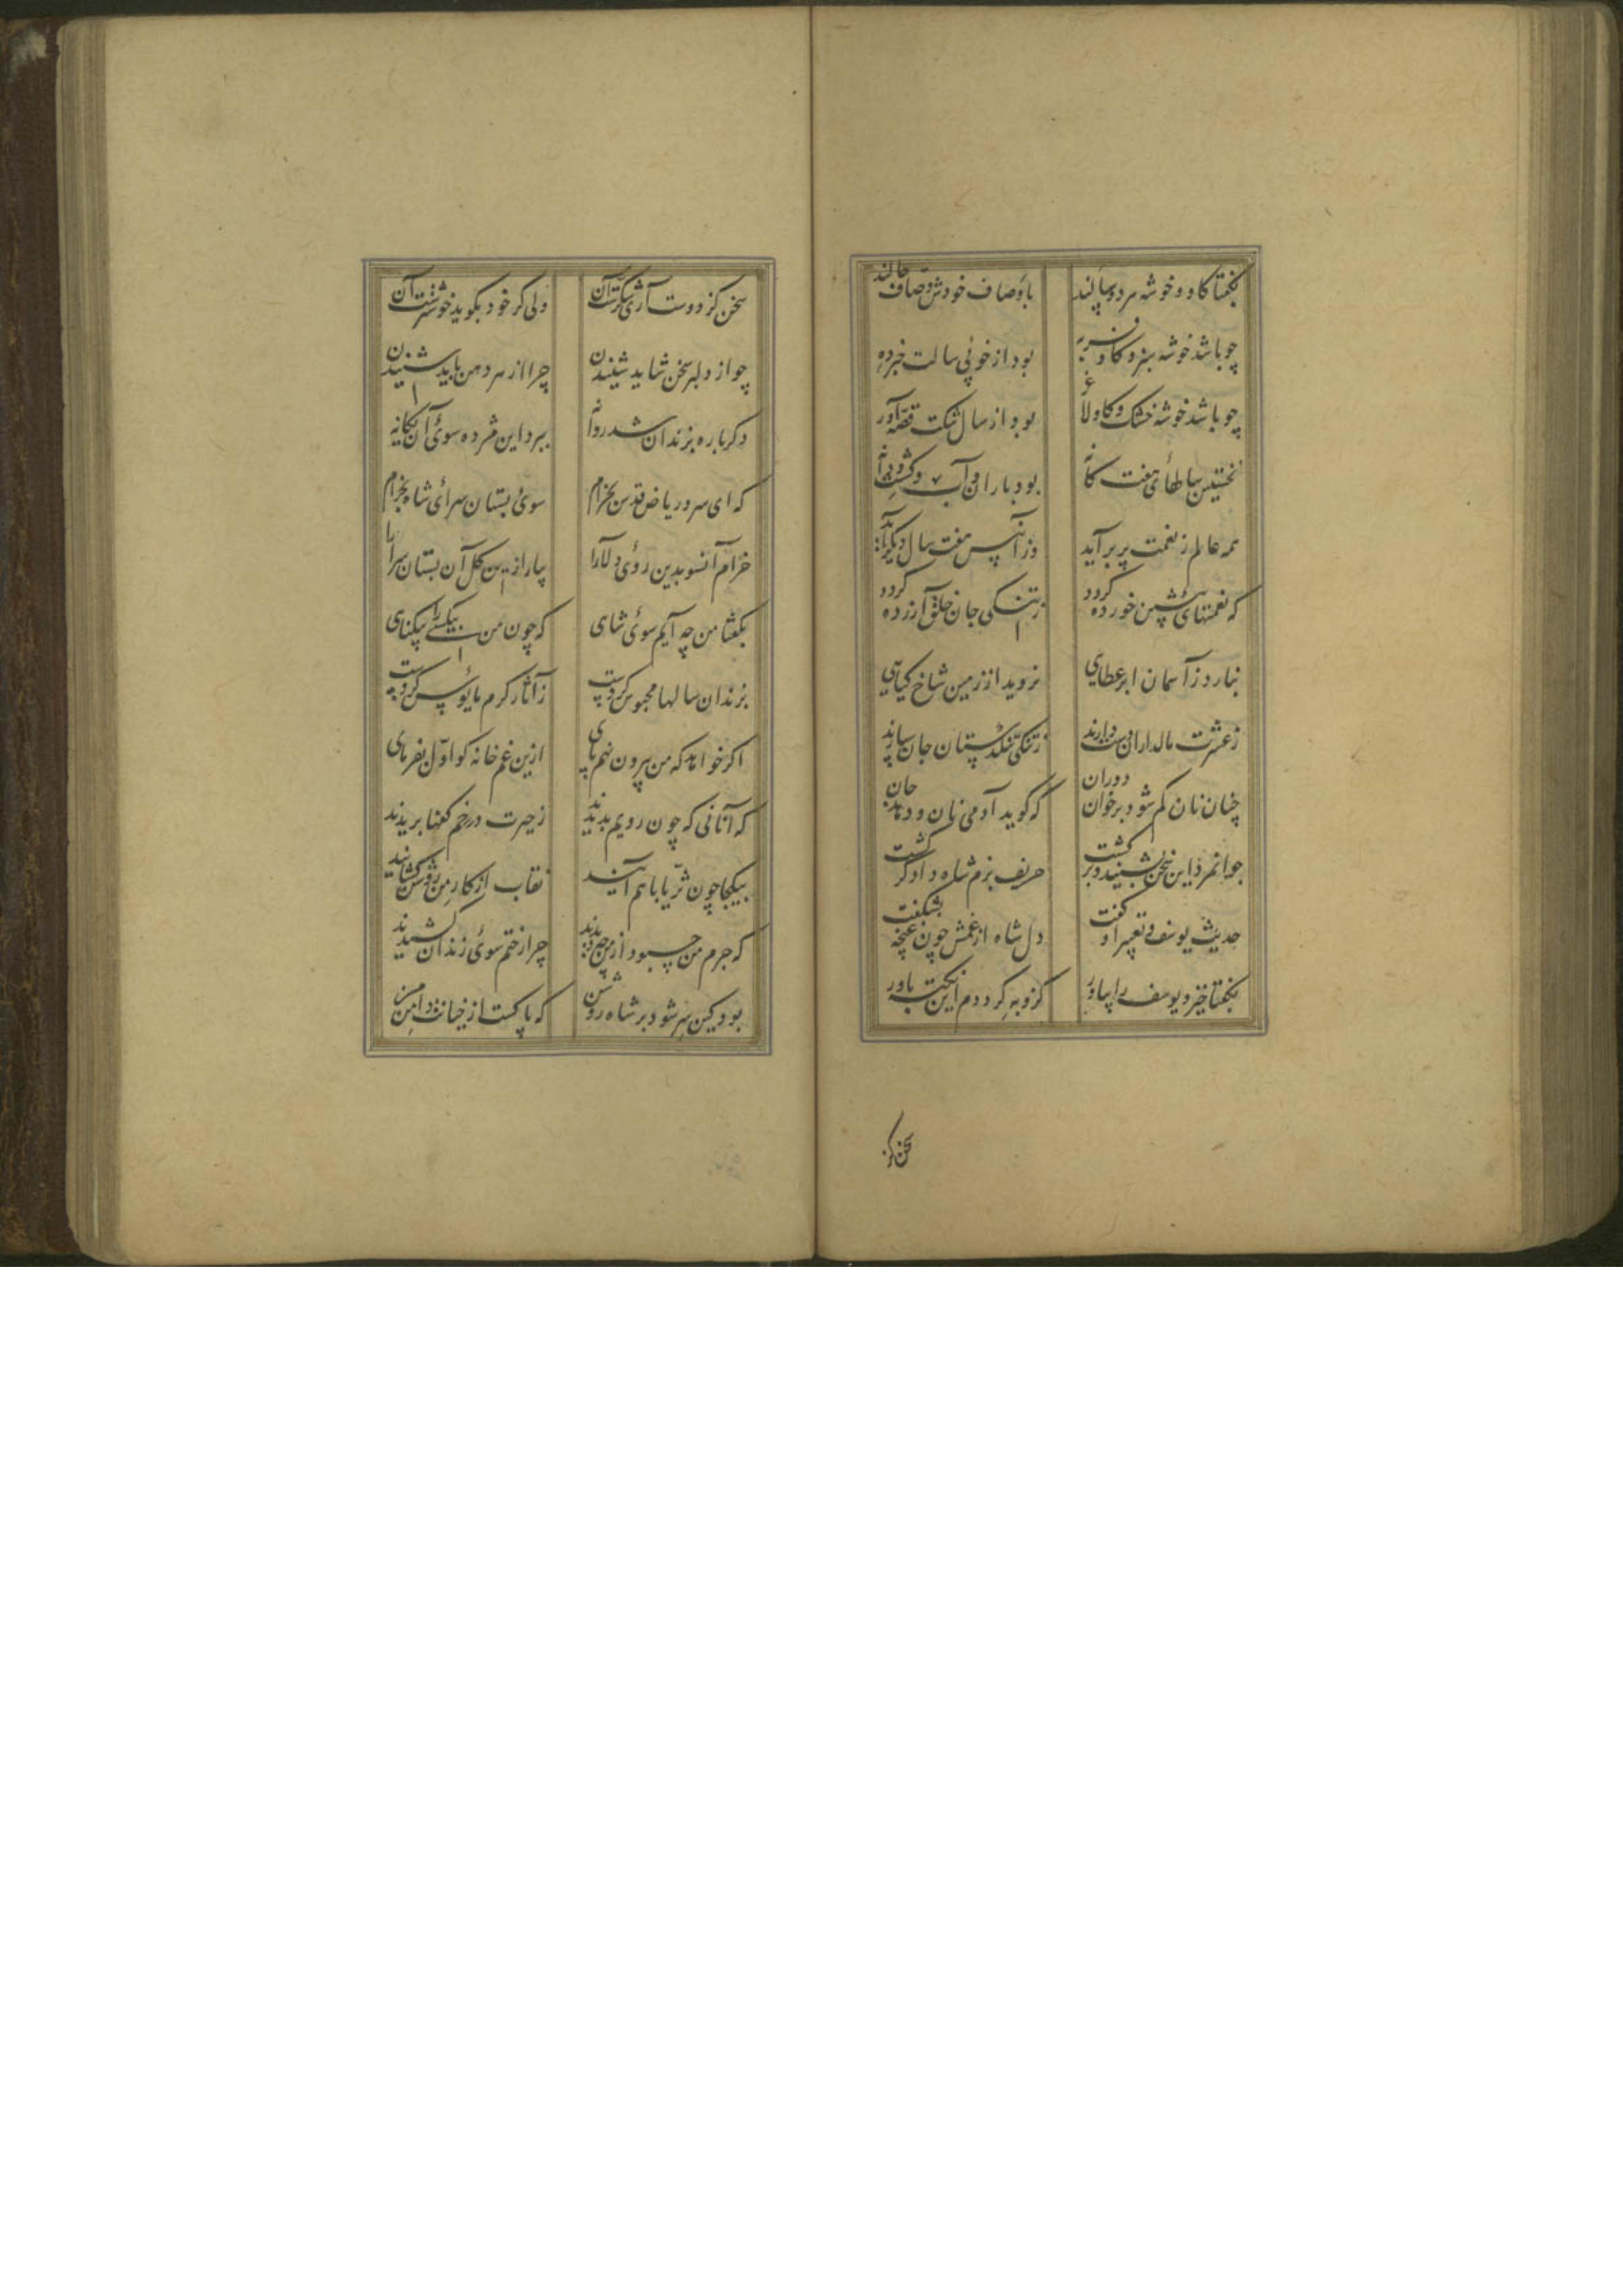 بگفتا گاو و خوشه هر دو سالند باوصاف خودش وصاف حالند
چو باشد خوشه سبز و گاو فربه بود از خوبی سالت خبرده
چو باشد خوشه خشک و گاو لاغر بود از سال تنگت قصه آور
نخستین سالهای هفت گانه بود باران و آب و کشت و دانه
همه عالم ز نعمت پر برآید وز آن پس هفت سال دیگر آید
که نعمتهای پیشین خورده گردد ز تنگی جان خلق آزرده گردد
نبارد ز آسمان ابر عطایی نروید از زمین شاخ گیایی
ز عشرت مالداران دست دارند ز تنگی تنگدستان جان سپارند
چنان نان کم شود بر خوان دوران که گوید آدمی نان و دهد جان
جوانمرد این سخن بشنید و برگشت حریف بزم شاه دادگر گشت
حدیث یوسف و تعبیر او گفت دل شاه از غمش چون غنچه بشگفت
بگفتا خیز و یوسف را بیاور کزو به گرددم این نکته باور
سخن کز
سخن کز دوست آری شکرست آن ولی گر خود بگوید خوشترست آن
چو از دلبر سخن شاید شنیدن چرا از هر دهن باید شنیدن
دگرباره بزندان شد روانه ببرد این مژده سوی آن یگانه
که ای سرو ریاض قدس بخرام سوی بستان سرای شاه بخرام
خرام آنسو بدین روی دلآرا بیارا زین گل آن بستان سرا را
بگفتا من چه آیم سوی شاهی که چون من بیکسی را بیگناهی
بزندان سالها محبوس کردست ز آثار کرم مایوس کردست
اگر خواهد که من بیرون نهم پای ازین غم خانه گو اول بفرمای
که آنانی که چون رویم بدیدند ز حیرت در رخم کفها بریدند
بیکجا چون ثریا با هم آیند نقاب از کار من روشن گشایند
که جرم من چه بود از من چه دیدند چرا رختم سوی زندان کشیدند
بود کین سر شود بر شاه روشن که پاکست از خیانت دامن من